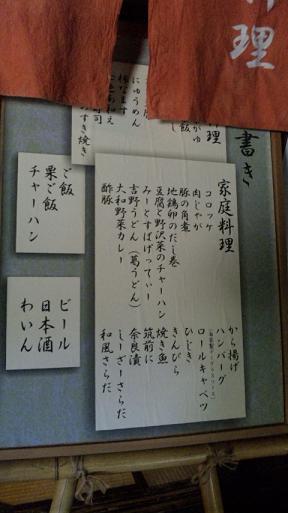 料理
書き
料理
にゅうめん
すき焼き
家庭料理
コロッケ
肉じゃが
豚の角煮
地鶏卵のだし巻
豆腐と野沢菜のチャーハン
みーとすぱげってぃー
吉野うどん(葛うどん)
大和野菜カレー
酢豚
から揚げ
ハンバーグ
ロールキャベツ
ひじき
きんぴら
焼き魚
筑前に
奈良漬
しーざーさらだ
和風さらだ
ご飯
栗ご飯
チャーハン
ビール
日本酒
わいん